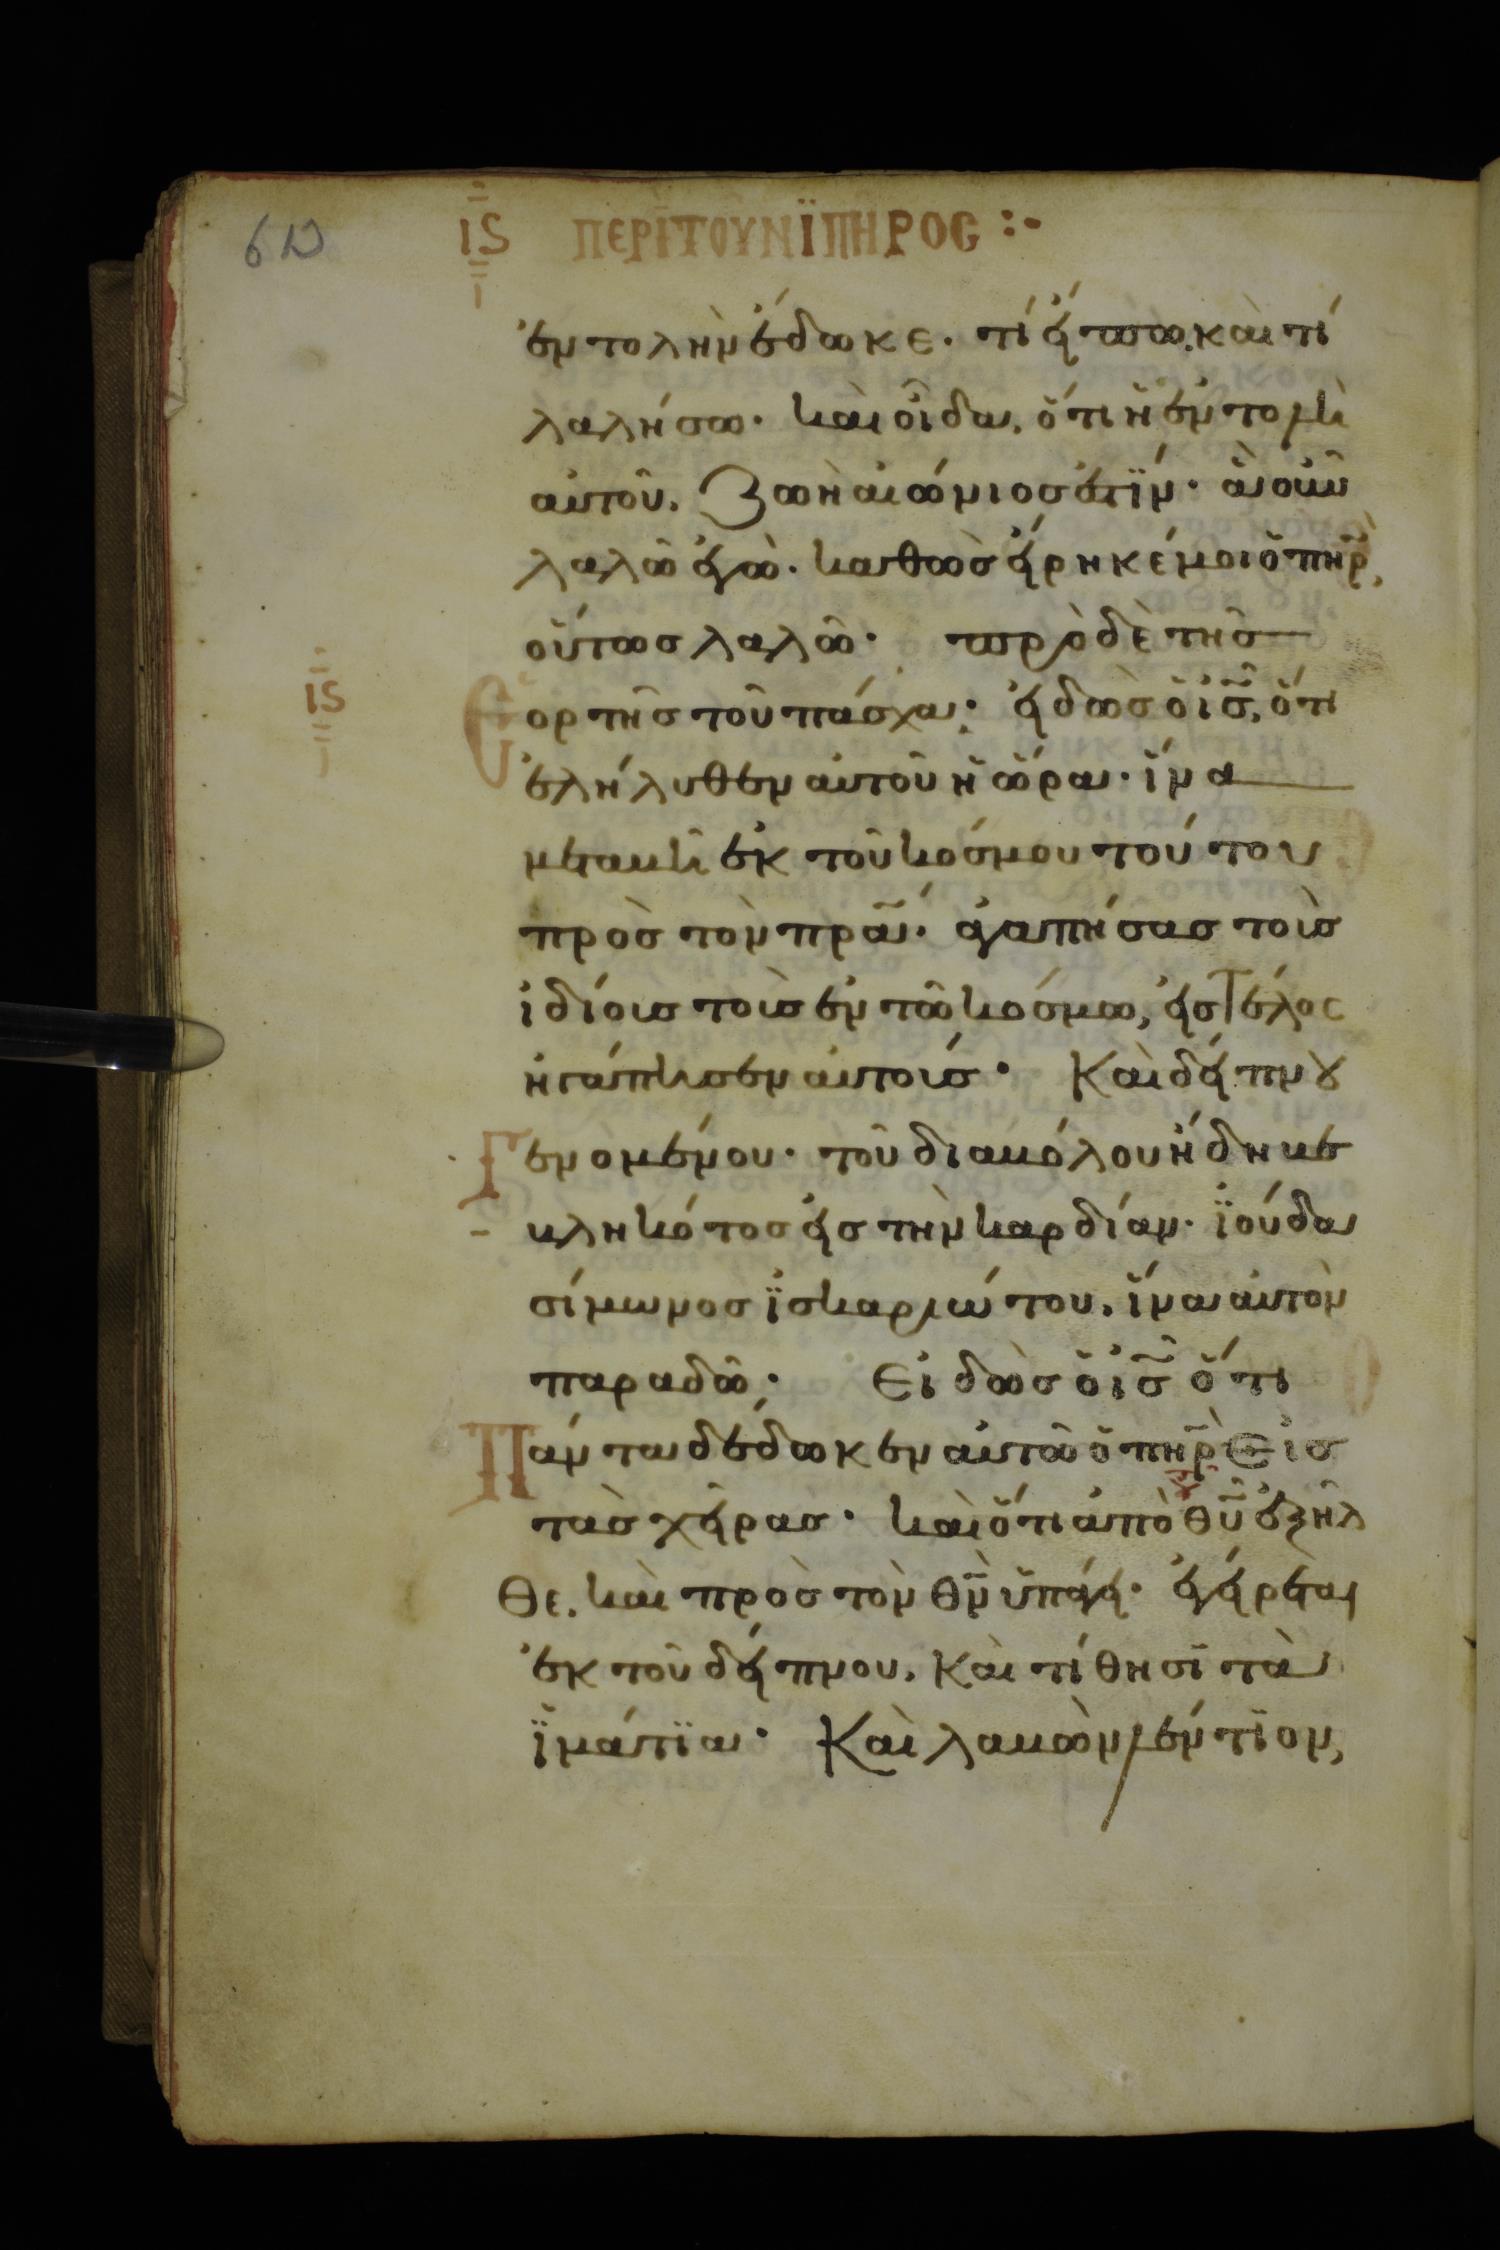 ιϛ ΠΕΡῚ ΤΟΥ͂ ΝΪΠΤΗΡΟC :-
ἐντολὴν ἔδωκε. τί εἴπω, καὶ τί
λαλήσω. καὶ οἶδα, ὅτι ἡ ἐντολὴ
αὐτοῦ, ζωὴ αἰώνιος ἐστϊν. ἃ οὖν
λαλῶ ἐγὼ. καθὼς εἴρηκέ μοι ὁ πη̅ρ,
οὕτως λαλῶ. πρὸ δὲ τῆς
ιϛ
Ἑορτῆς τοῦ πάσχα. εἰδὼς ὁ ι̅σ̅, ὅτι
ἐλήλυθεν αὐτοῦ ἡ ὥρα. ἵνα
μεταβῆ ἐκ τοῦ κόσμου τούτου
πρὸς τὸν πρ̅α̅. ἀγαπήσας τοὺς
ἰδίους τοὺς ἐν τῶ κόσμω, εἰς τέλος
ἠγάπησεν αὐτούς. Καὶ δείπνου
Γενομένου. τοῦ διαβόλου ἤδη βε
βληκότος εἰς τὴν καρδίαν. ϊούδα
σίμωνος ϊσκαριώτου, ἵνα αὐτὸν
παραδῶ. Εἰδὼς ὁ ι̅σ̅ ὅτι
Πάντα δέδωκεν αὐτῶ ὁ πη̅ρ Εἰς
τὰς χεῖρας. καὶ ὅτι ἀπὸ θ̅υ̅ ἐξῆλ
θε, καὶ πρὸς τὸν θ̅ν̅ ὑπάγει. ἐγείρεται
ἐκ τοῦ δείπνου, καὶ τίθησϊ τὰ
ϊμάτϊα. Καὶ λαβὼν λέντϊον,